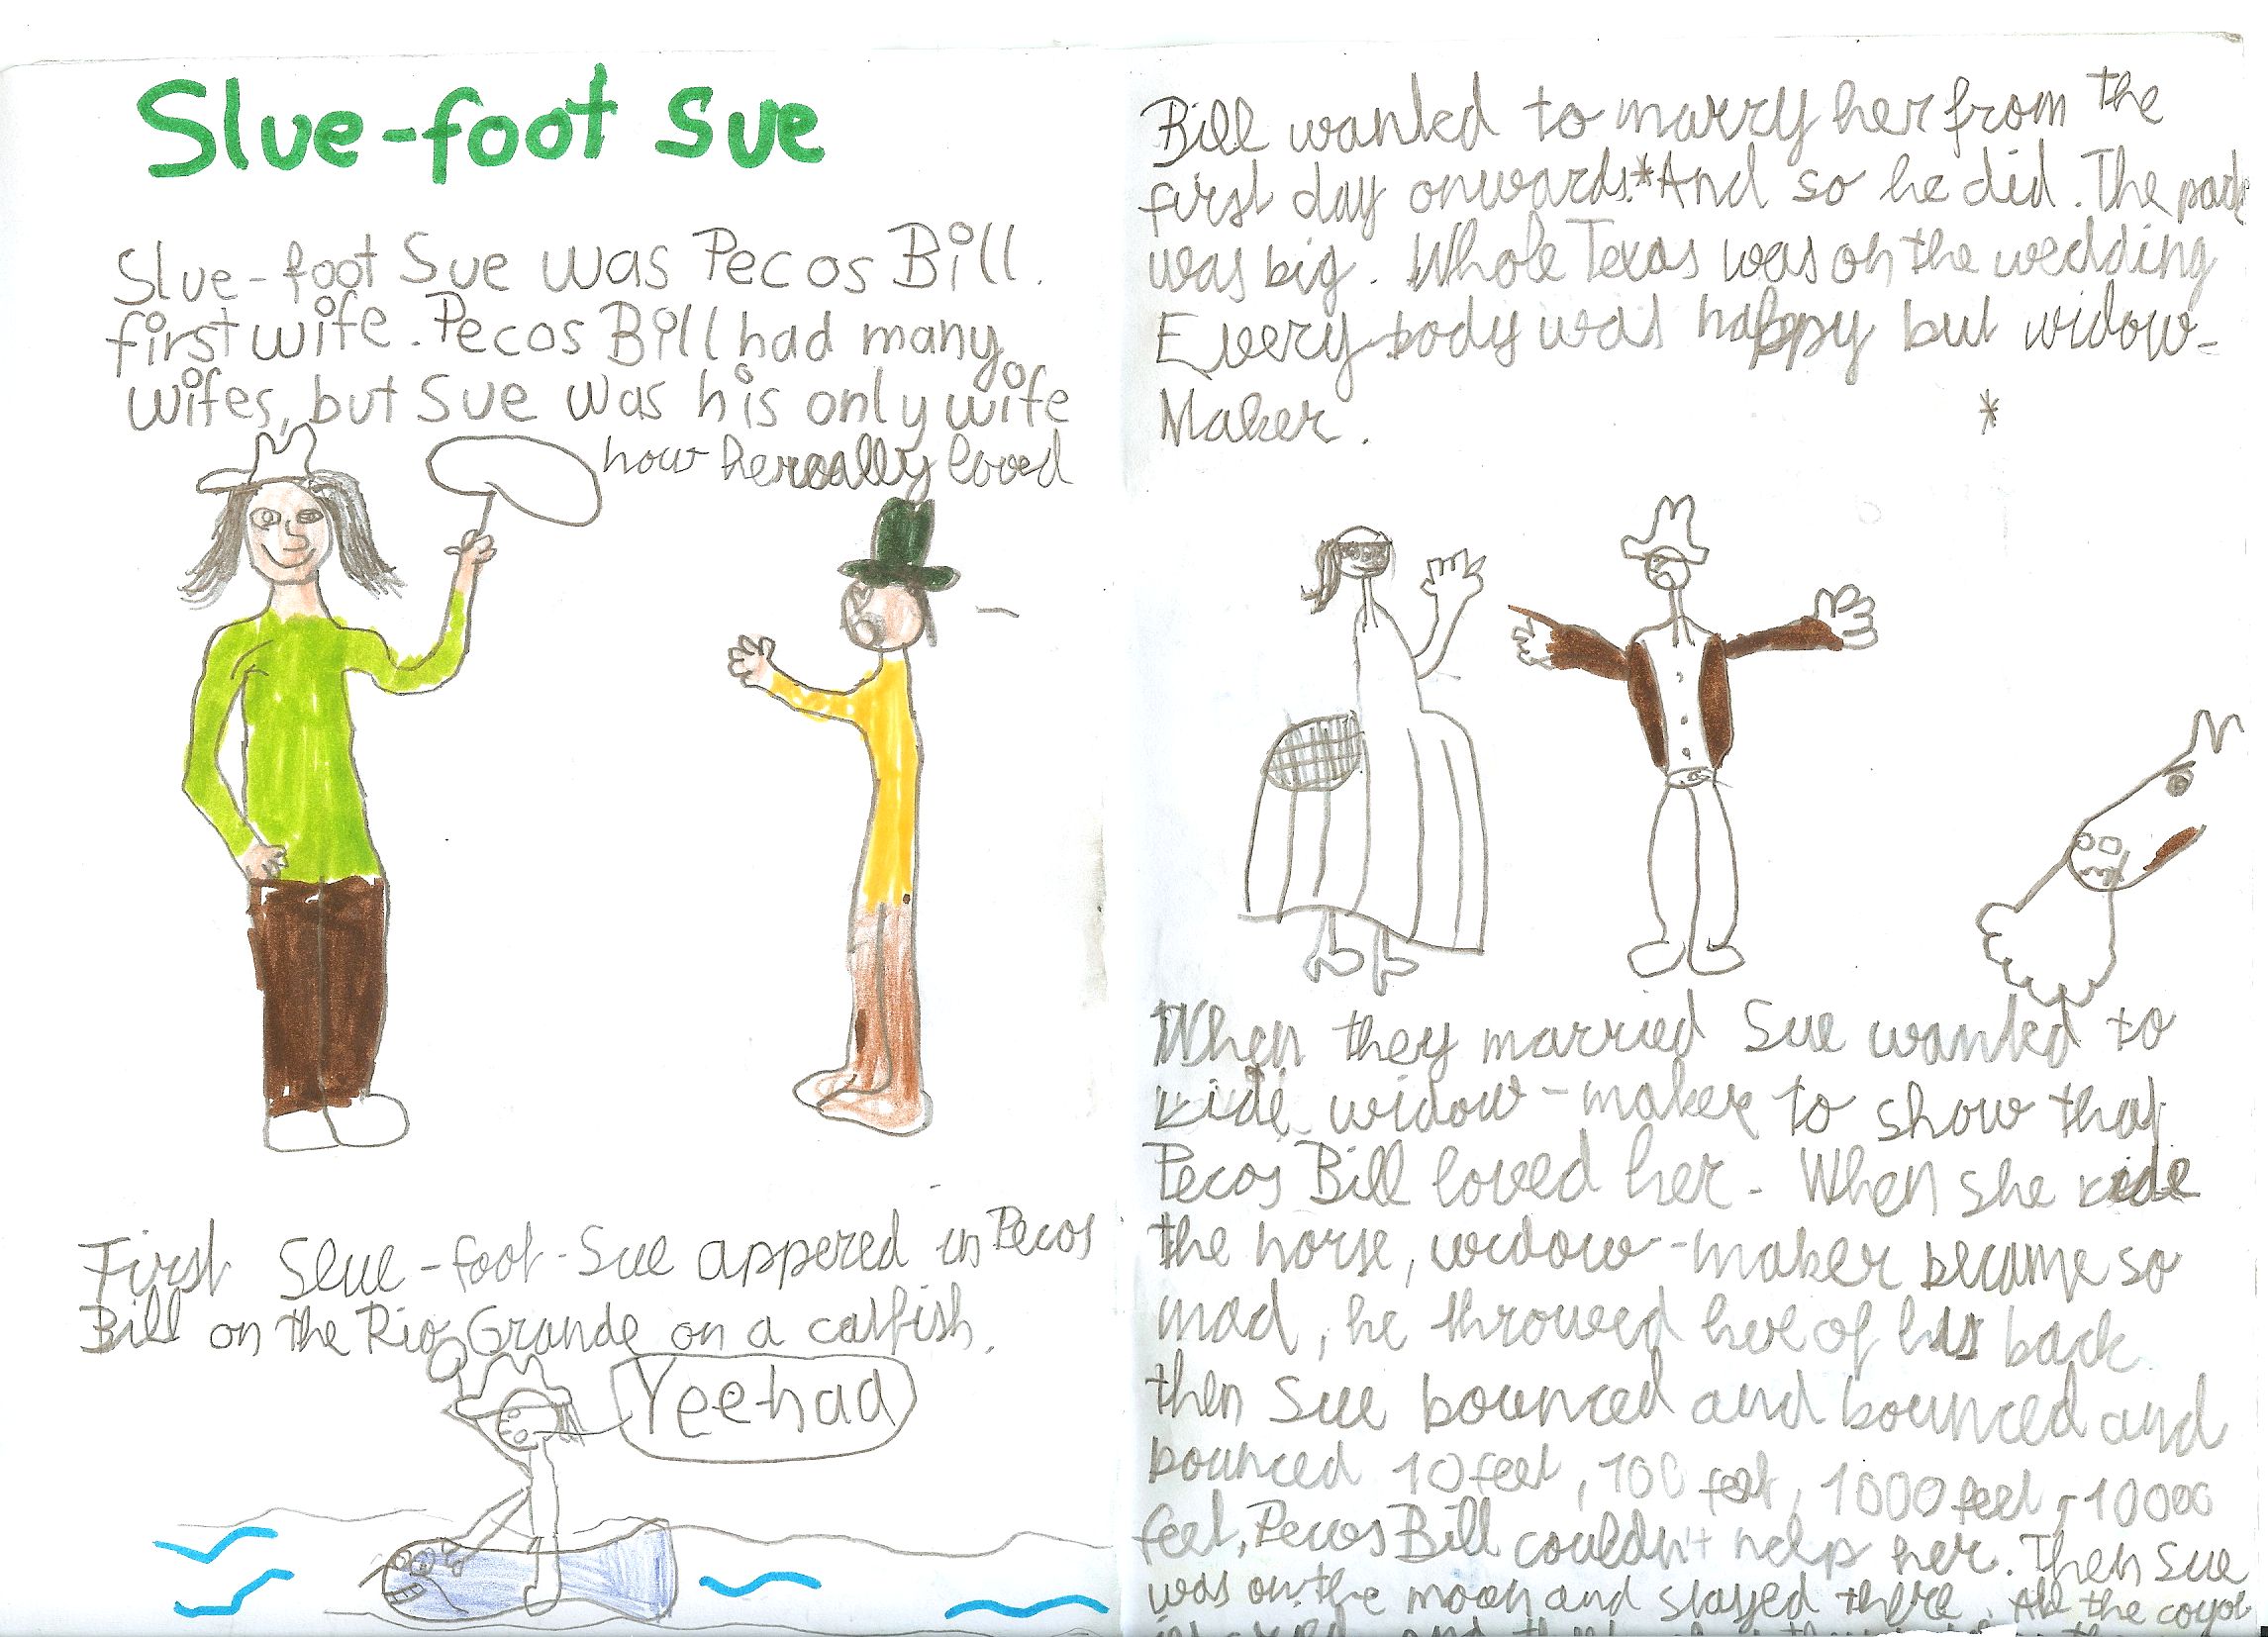 Slue-foot Sue
Slue-foot Sue was Pecos Bill.
first wife. Pecos Bill had many
wifes, but Sue was his only wife
how he really loved
First Slue-foot-Sue appered in Pecos
Bill on the Rio Grande on a catfish.
Yee-haa
Bill wanted to marry her from the
first day onwards.* And so he did. The
was big. Whole Texas was on the wedding
Every body was happy but widow-
Maker.
*
When they married Sue wanted to
ride widow-maker to show that
Pecos Bill loved her. When she ride
the horse, widow-maker became so
mad, he throwed her of his back
then Sue bounced and bounced and
bounced 10 feet, 100 feet, 1000 feet, 10000
feet, Pecos Bill couldn't help her. Then Sue
was on the moon and stayed there. All the